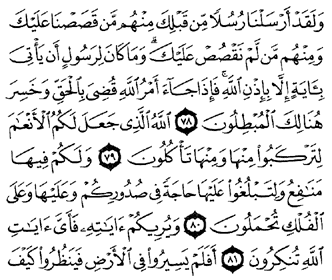 وَلَقَدْ أَرْسَلْنَا رُسُلًا مِّن قَبْلِكَ مِنْهُم مَّن قَصَصْنَا عَلَيْكَ
وَمِنْهُم مَّن لَّمْ نَقْصُصْ عَلَيْكَ ۗ وَمَا كَانَ لِرَسُولٍ أَن يَأْتِىَ
بِـَٔايَةٍ إِلَّا بِإِذْنِ ٱللَّهِ ۚ فَإِذَا جَآءَ أَمْرُ ٱللَّهِ قُضِىَ بِٱلْحَقِّ وَخَسِرَ
هُنَالِكَ ٱلْمُبْطِلُونَ ٧٨ ٱللَّهُ ٱلَّذِى جَعَلَ لَكُمُ ٱلْأَنْعَٰمَ
لِتَرْكَبُوا۟ مِنْهَا وَمِنْهَا تَأْكُلُونَ ٧٩ وَلَكُمْ فِيهَا
مَنَٰفِعُ وَلِتَبْلُغُوا۟ عَلَيْهَا حَاجَةً فِى صُدُورِكُمْ وَعَلَيْهَا وَعَلَى
ٱلْفُلْكِ تُحْمَلُونَ ٨٠ وَيُرِيكُمْ ءَايَٰتِهِۦ فَأَىَّ ءَايَٰتِ
ٱللَّهِ تُنكِرُونَ ٨١ أَفَلَمْ يَسِيرُوا۟ فِى ٱلْأَرْضِ فَيَنظُرُوا۟ كَيْفَ